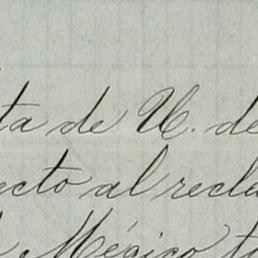 ta de U. de
ecto al recla
México